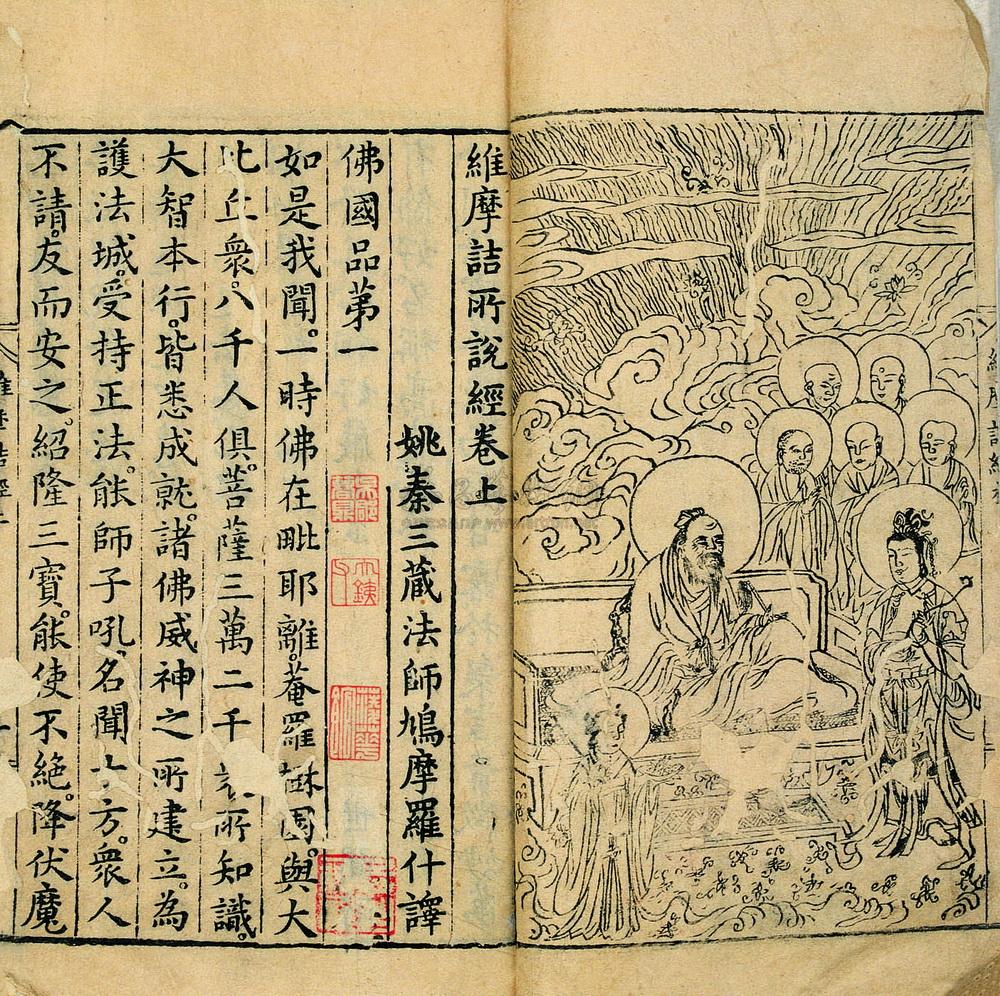 維摩詰所說經卷上
姚秦三藏法師鳩摩羅什譯
佛國品第一
如是我聞。一時佛在毗耶離。菴羅樹園。與大
比丘衆。八千人俱。菩薩三萬二千。衆所知識。
大智本行。皆悉成就。諸佛威神之所建立。為
護法城。受持正法。能師子吼。名聞十方。衆人
不請。友而安之。紹隆三寶。能使不絕。降伏魔
維摩詰經